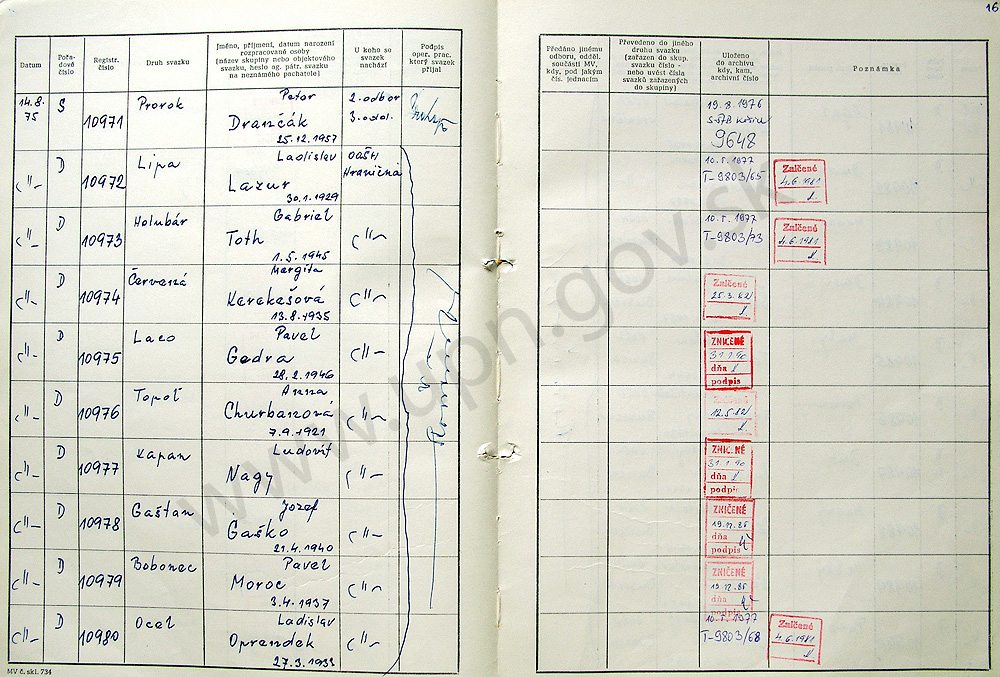 16
Datum
Pořadové číslo
Registr. číslo
Druh svazku
Jméno, příjmení, datum narození
rozpracované osoby
(název skupiny nebo objektového
svazku, heslo ag. pátr. svazku
na neznámého pachatele)
U koho se
svazek
nachází
Podpis
oper. prac.
který svazek
přijal
Předáno jinému
odboru, odděl.
součásti MV,
kdy, pod jakým
čís. jednacím
Převedeno do jiného
druhu svazku
(zařazen do skup.
svazku číslo -
nebo uvést čísla
svazků zařazených
do skupiny)
Uloženo
do archivu
kdy, kam,
archivní číslo
Poznámka
14.8.
75
S
10971
Prorok
Peter
Drančák
25.12.1957
2. odbor
3. odd.
19.8.1976
9648
D
10972
Lipa
Ladislav
Lazur
30.1.1929
OOŠH
Hraničná
10.5.1977
T-9803/65
Zalčené
4.6.1981
D
10973
Holubár
Gabriel
Toth
1.5.1945
10.5.1977
T-9803/73
Zalčené
4.6.1981
D
10974
Červená
Margita
Kerekešová
13.8.1935
Zalčené
25.3.82
D
10975
Laco
Pavel
Gedra
28.2.1946
ZNIČENÉ
31.1.90
dňa
podpis
D
10976
Topoľ
Anna
Churbanová
7.9.1921
Zalčené
12.5.82
D
10977
Kapan
Ľudovít
Nagy
ZNIČENÉ
31.1.90
dňa
podpis
D
10978
Gaštan
Jozef
Gaško
21.4.1940
ZNIČENÉ
19.12.86
dňa
podpis
D
10979
Bobonec
Pavel
Moroc
3.4.1937
ZNIČENÉ
19.12.86
dňa
podpis
D
10980
Ocel
Ladislav
Oprendek
27.3.1933
10.5.1977
T-9803/68
Zalčené
4.6.1981
MV č. skl. 734
www.upn.gov.sk